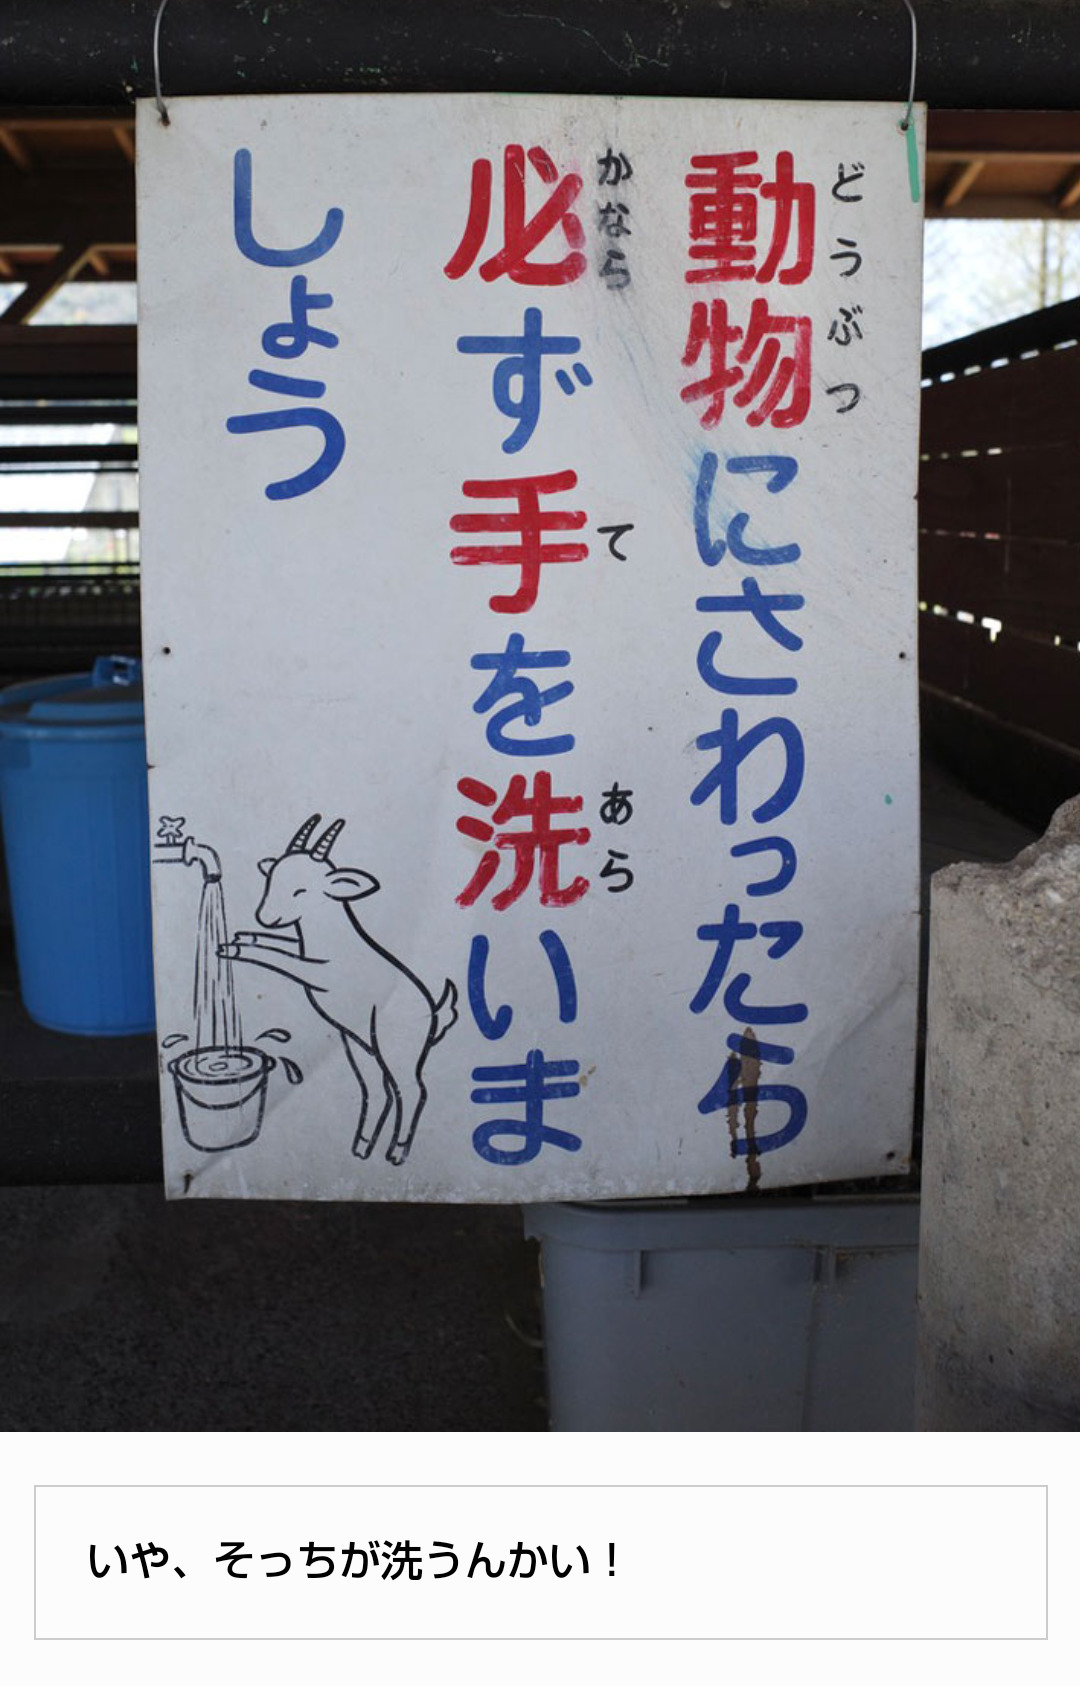 動物にさわったら
どうぶつ
必ず手を洗いま
かなら
て
あら
しょう
いや、そっちが洗うんかい！